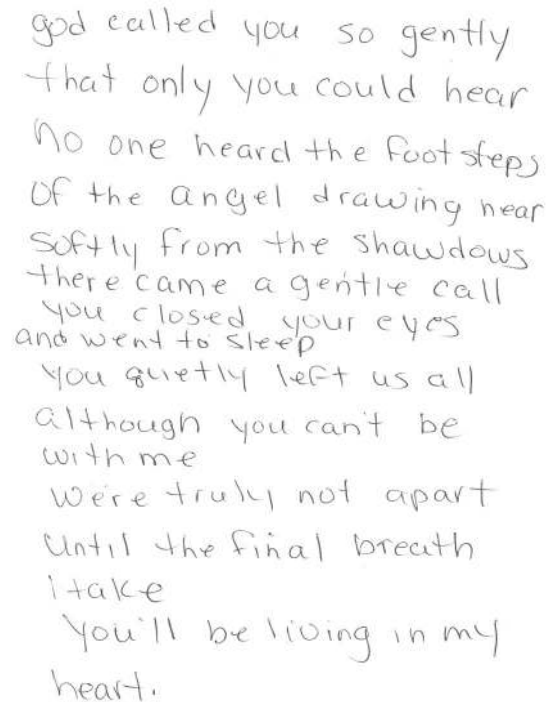 god called you so gently
that only you could hear
No one heard the footsteps
Of the angel drawing near
Softly from the shawdows
there came a gentle call
you closed your eyes
and went to sleep
you quietly left us all
although you can't be
with me
we're truly not apart
Until the final breath
i take
You'll be living in my
heart.